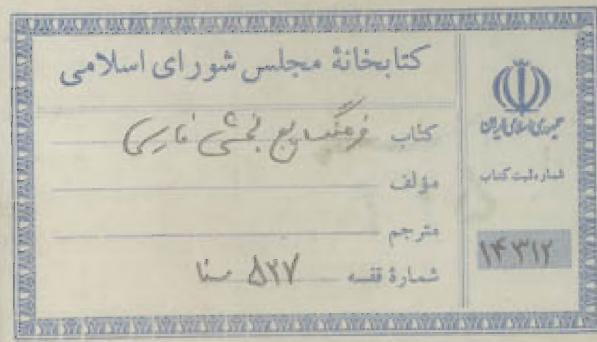 کتابخانهٔ مجلس شورای اسلامی
کتاب فرهنگ بخشی فارسی
مؤلف
مترجم
شمارهٔ قفسه ۵۲۷ سنا
جمهوری اسلامی ایران
شماره ثبت کتاب
۱۴۳۱۲